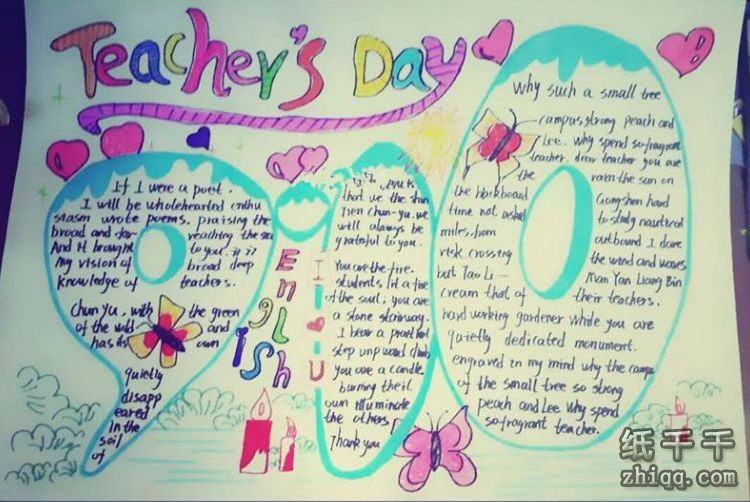 Teacher's Day
If I were a poet.
I will be wholehearted enthu
siasm wrote poems. praising the
broad and far reaching the sea
And it brought to you. it is
my vision of broad deep
knowledge of teachers.
Chun Yu. with the green
of the wild and
has its own
quietly
disapp
eared
in the
soil
of
English
I
U
that we the
Chun-yu. we
will always be
grateful to you.
You are the fire.
students lit a fire
of the soul; you are
a stone stairway.
I bear a
step up ward climb
you are a candle
burning their
own illuminate
the others
Thank you
Why such a small tree
campus strong peach and
Lee. Why spend so fragrant
teacher. dear teacher you are
the rain the sun on
the blackboard Gongshen hard
time not asked to study
miles. from outbound I dare
risk crossing the wind and waves
but Tao Li— Man Yan Liang Bin
cream that of their teachers.
hard working gardener while you are
quietly dedicated monument.
engraved in my mind why the campus
of the small tree so strong
peach and Lee Why spend
so fragrant teacher.
纸千千
zhiqq.com